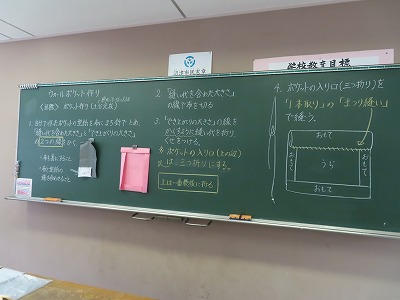 ウォールポケット作り
〈目標〉 ポケット作り(土台完成)
1. 自分で作ったポケットの型紙を布にまち針でとめ、
「縫い代を合わせた大きさ」と「できあがりの大きさ」
の2つの線をかく。
2. 「縫い代を合わせた大きさ」
の線で布を切る
3. 「できあがりの大きさ」の線を
かくすように縫い代を折り
くせをつける。
※ポケットの入り口(上の辺)
は三つ折りにする。
上は一番最後に折る
4. ポケットの入り口(三つ折り)を
「1本取り」の「まつり縫い」
で縫う。
おもて
おもて
うら
おもて
おもて
沼津市民憲章
学校教育目標